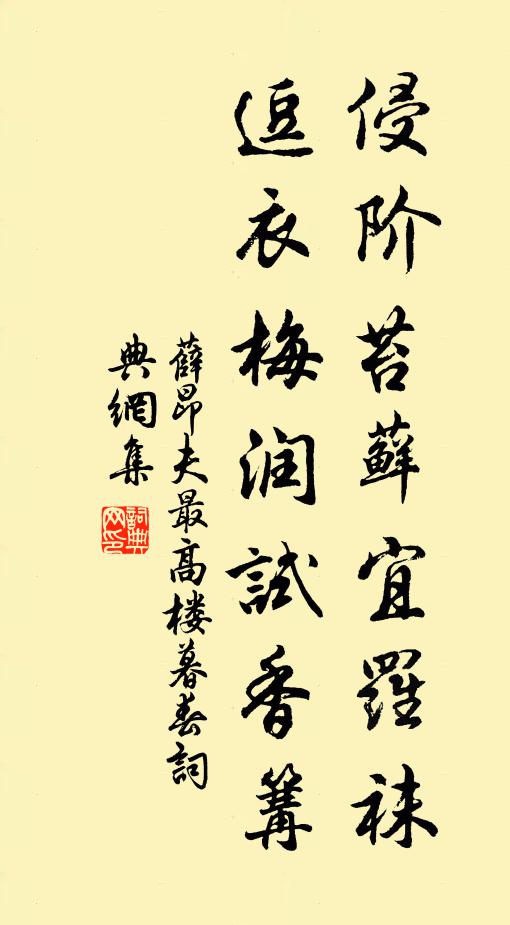 侵阶苔藓宜羅袜
逗衣梅润試香篝
薛昂夫最高楼暮春詞
典網集
詞典网印